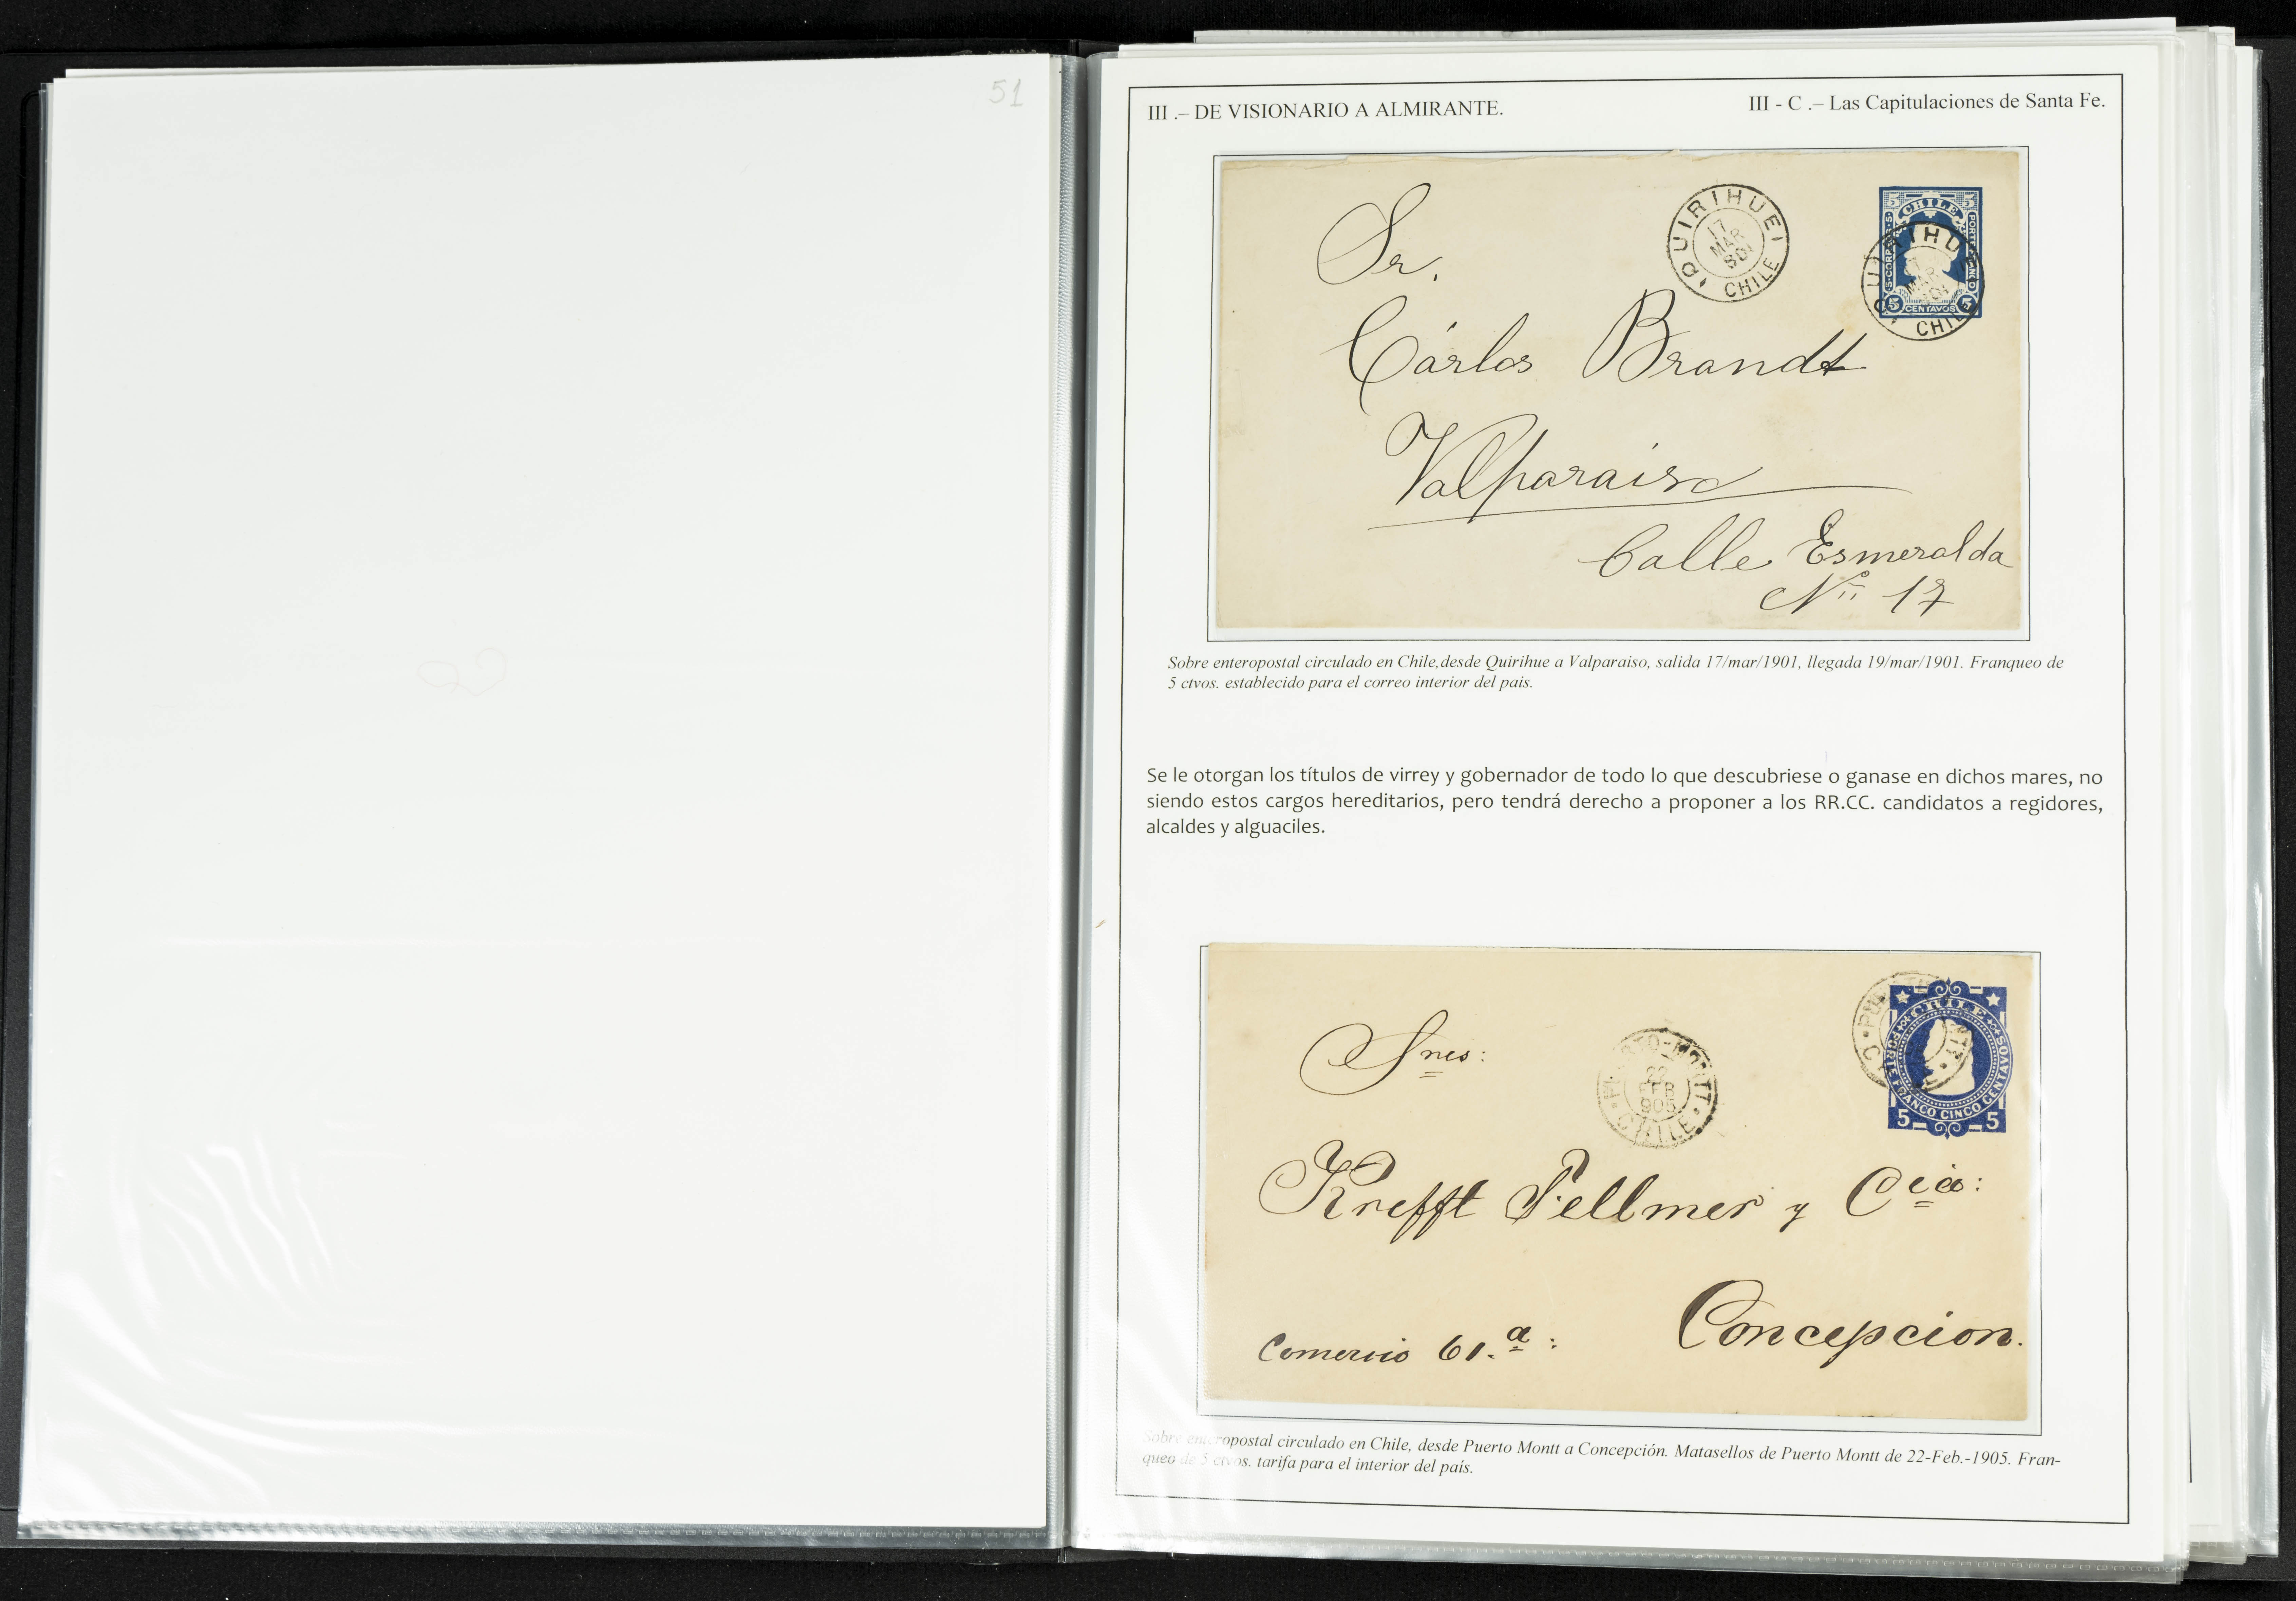 51
III .– DE VISIONARIO A ALMIRANTE.
III - C .– Las Capitulaciones de Santa Fe.
QUIRIHUE
17
MAR
901
CHILE
5 5
CHILE
PORTE FRANCO
5 CENTAVOS 5
QUIRIHUE
CHILE
Sr.
Cárlos Brandt
Valparaiso
Calle Esmeralda
No 17
Sobre enteropostal circulado en Chile,desde Quirihue a Valparaiso, salida 17/mar/1901, llegada 19/mar/1901. Franqueo de
5 ctvos. establecido para el correo interior del pais.
Se le otorgan los títulos de virrey y gobernador de todo lo que descubriese o ganase en dichos mares, no
siendo estos cargos hereditarios, pero tendrá derecho a proponer a los RR.CC. candidatos a regidores,
alcaldes y alguaciles.
CHILE
PORTE FRANCO CINCO CENTAVOS
5 5
PUERTO-MONTT
22
FEB
905
CHILE
Sres:
Krefft Sellmer y Cia:
Concepcion.
Comercio 61.a:
Sobre enteropostal circulado en Chile, desde Puerto Montt a Concepción. Matasellos de Puerto Montt de 22-Feb.-1905. Fran-
queo de 5 ctvos. tarifa para el interior del país.